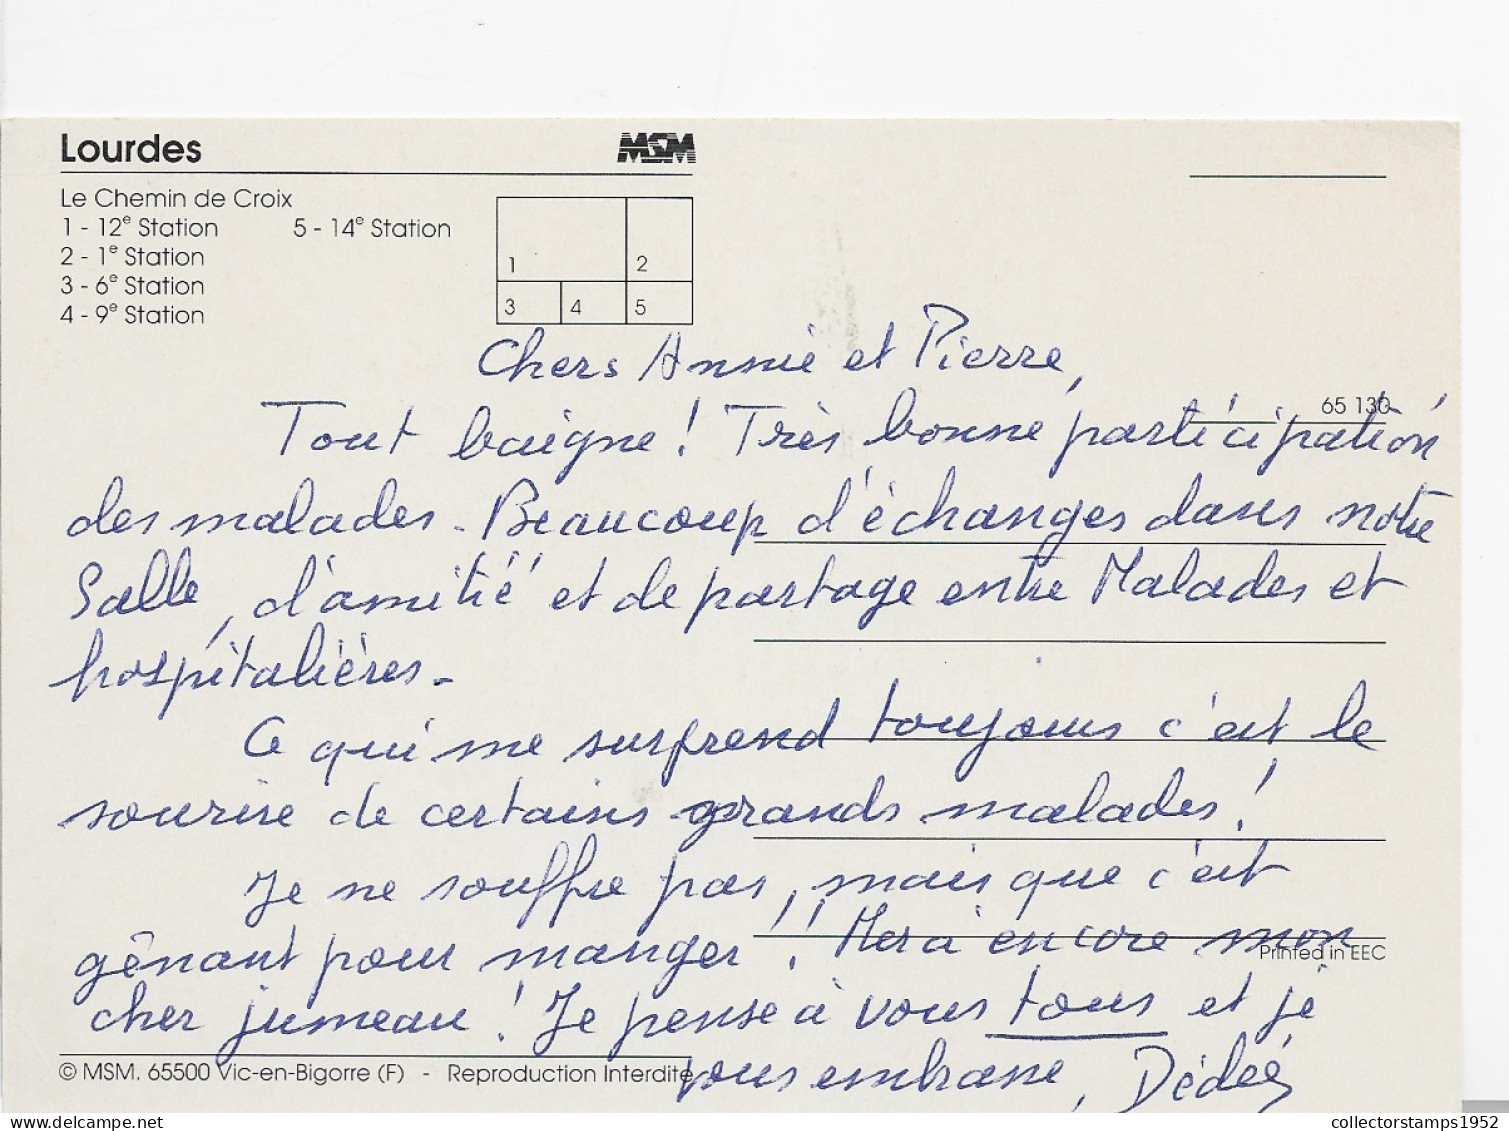 Lourdes
MSM
Le Chemin de Croix
1 - 12e Station 5 - 14e Station
2 - 1e Station
3 - 6e Station
4 - 9e Station
1 2
3 4 5
Chers Annie et Pierre,
65 130
Tout baigne ! Très bonne participation
des malades - Beaucoup d'échanges dans notre
Salle, d'amitié et de partage entre Malades et
hospitalières -
Ce qui me surprend toujours c'est le
sourire de certains grands malades !
Je ne souffre pas, mais que c'est
gênant pour manger !! Merci encore mon
Printed in EEC
cher jumeau ! Je pense à vous tous et je
vous embrasse, Dédée
© MSM. 65500 Vic-en-Bigorre (F) - Reproduction Interdite
collectorstamps1952